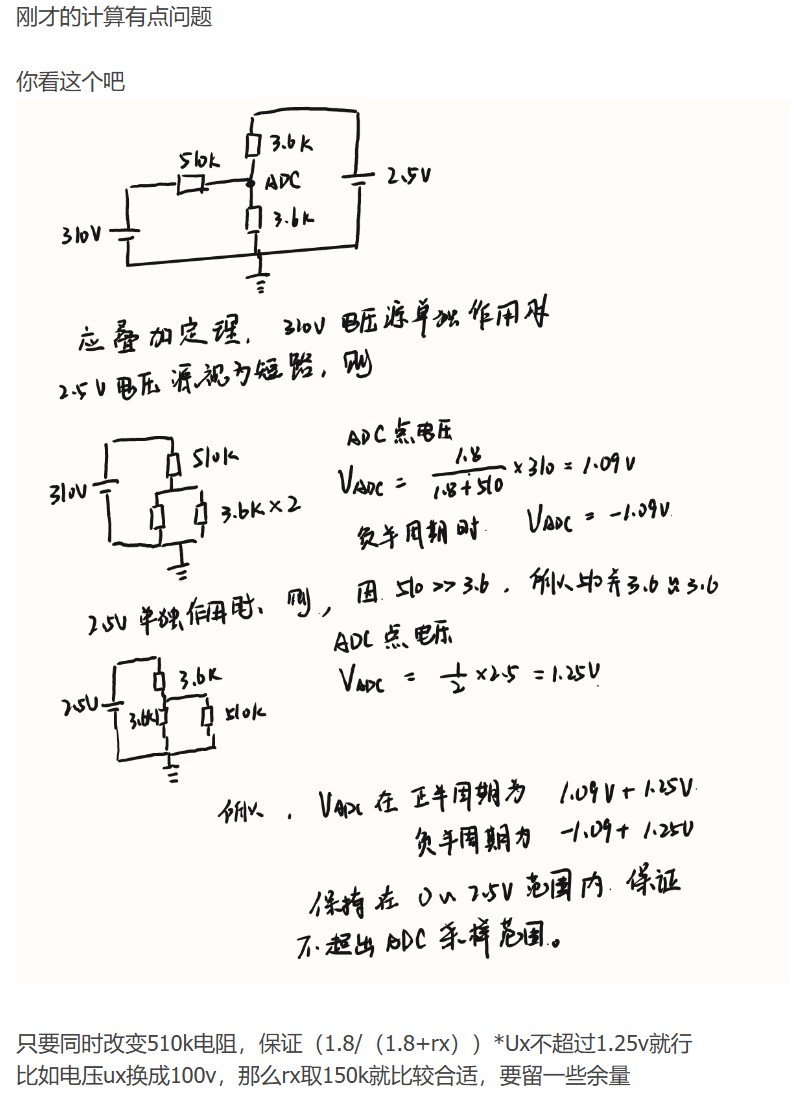 刚才的计算有点问题
你看这个吧
3.6K
510K
ADC
2.5V
3.6K
310V
应叠加定理, 310V 电压源单独作用时
2.5V 电压源视为短路, 则
ADC 点电压
510K
310V
V_ADC = 1.8/(1.8+510) ×310 = 1.09V
3.6K×2
负半周期时. V_ADC = -1.09V
2.5V 单独作用时、则, 因 510 >> 3.6. 所以 3.6 ≈ 3.6
ADC 点电压
3.6K
V_ADC = 1/2 ×2.5 = 1.25V
2.5V
3.6K
510K
所以, V_ADC 在 正半周期为 1.09V + 1.25V
负半周期为 -1.09 + 1.25V
保持在 0~2.5V 范围内. 保证
不超出 ADC 采样范围。
只要同时改变510k电阻，保证（1.8/（1.8+rx））*Ux不超过1.25v就行
比如电压ux换成100v，那么rx取150k就比较合适，要留一些余量